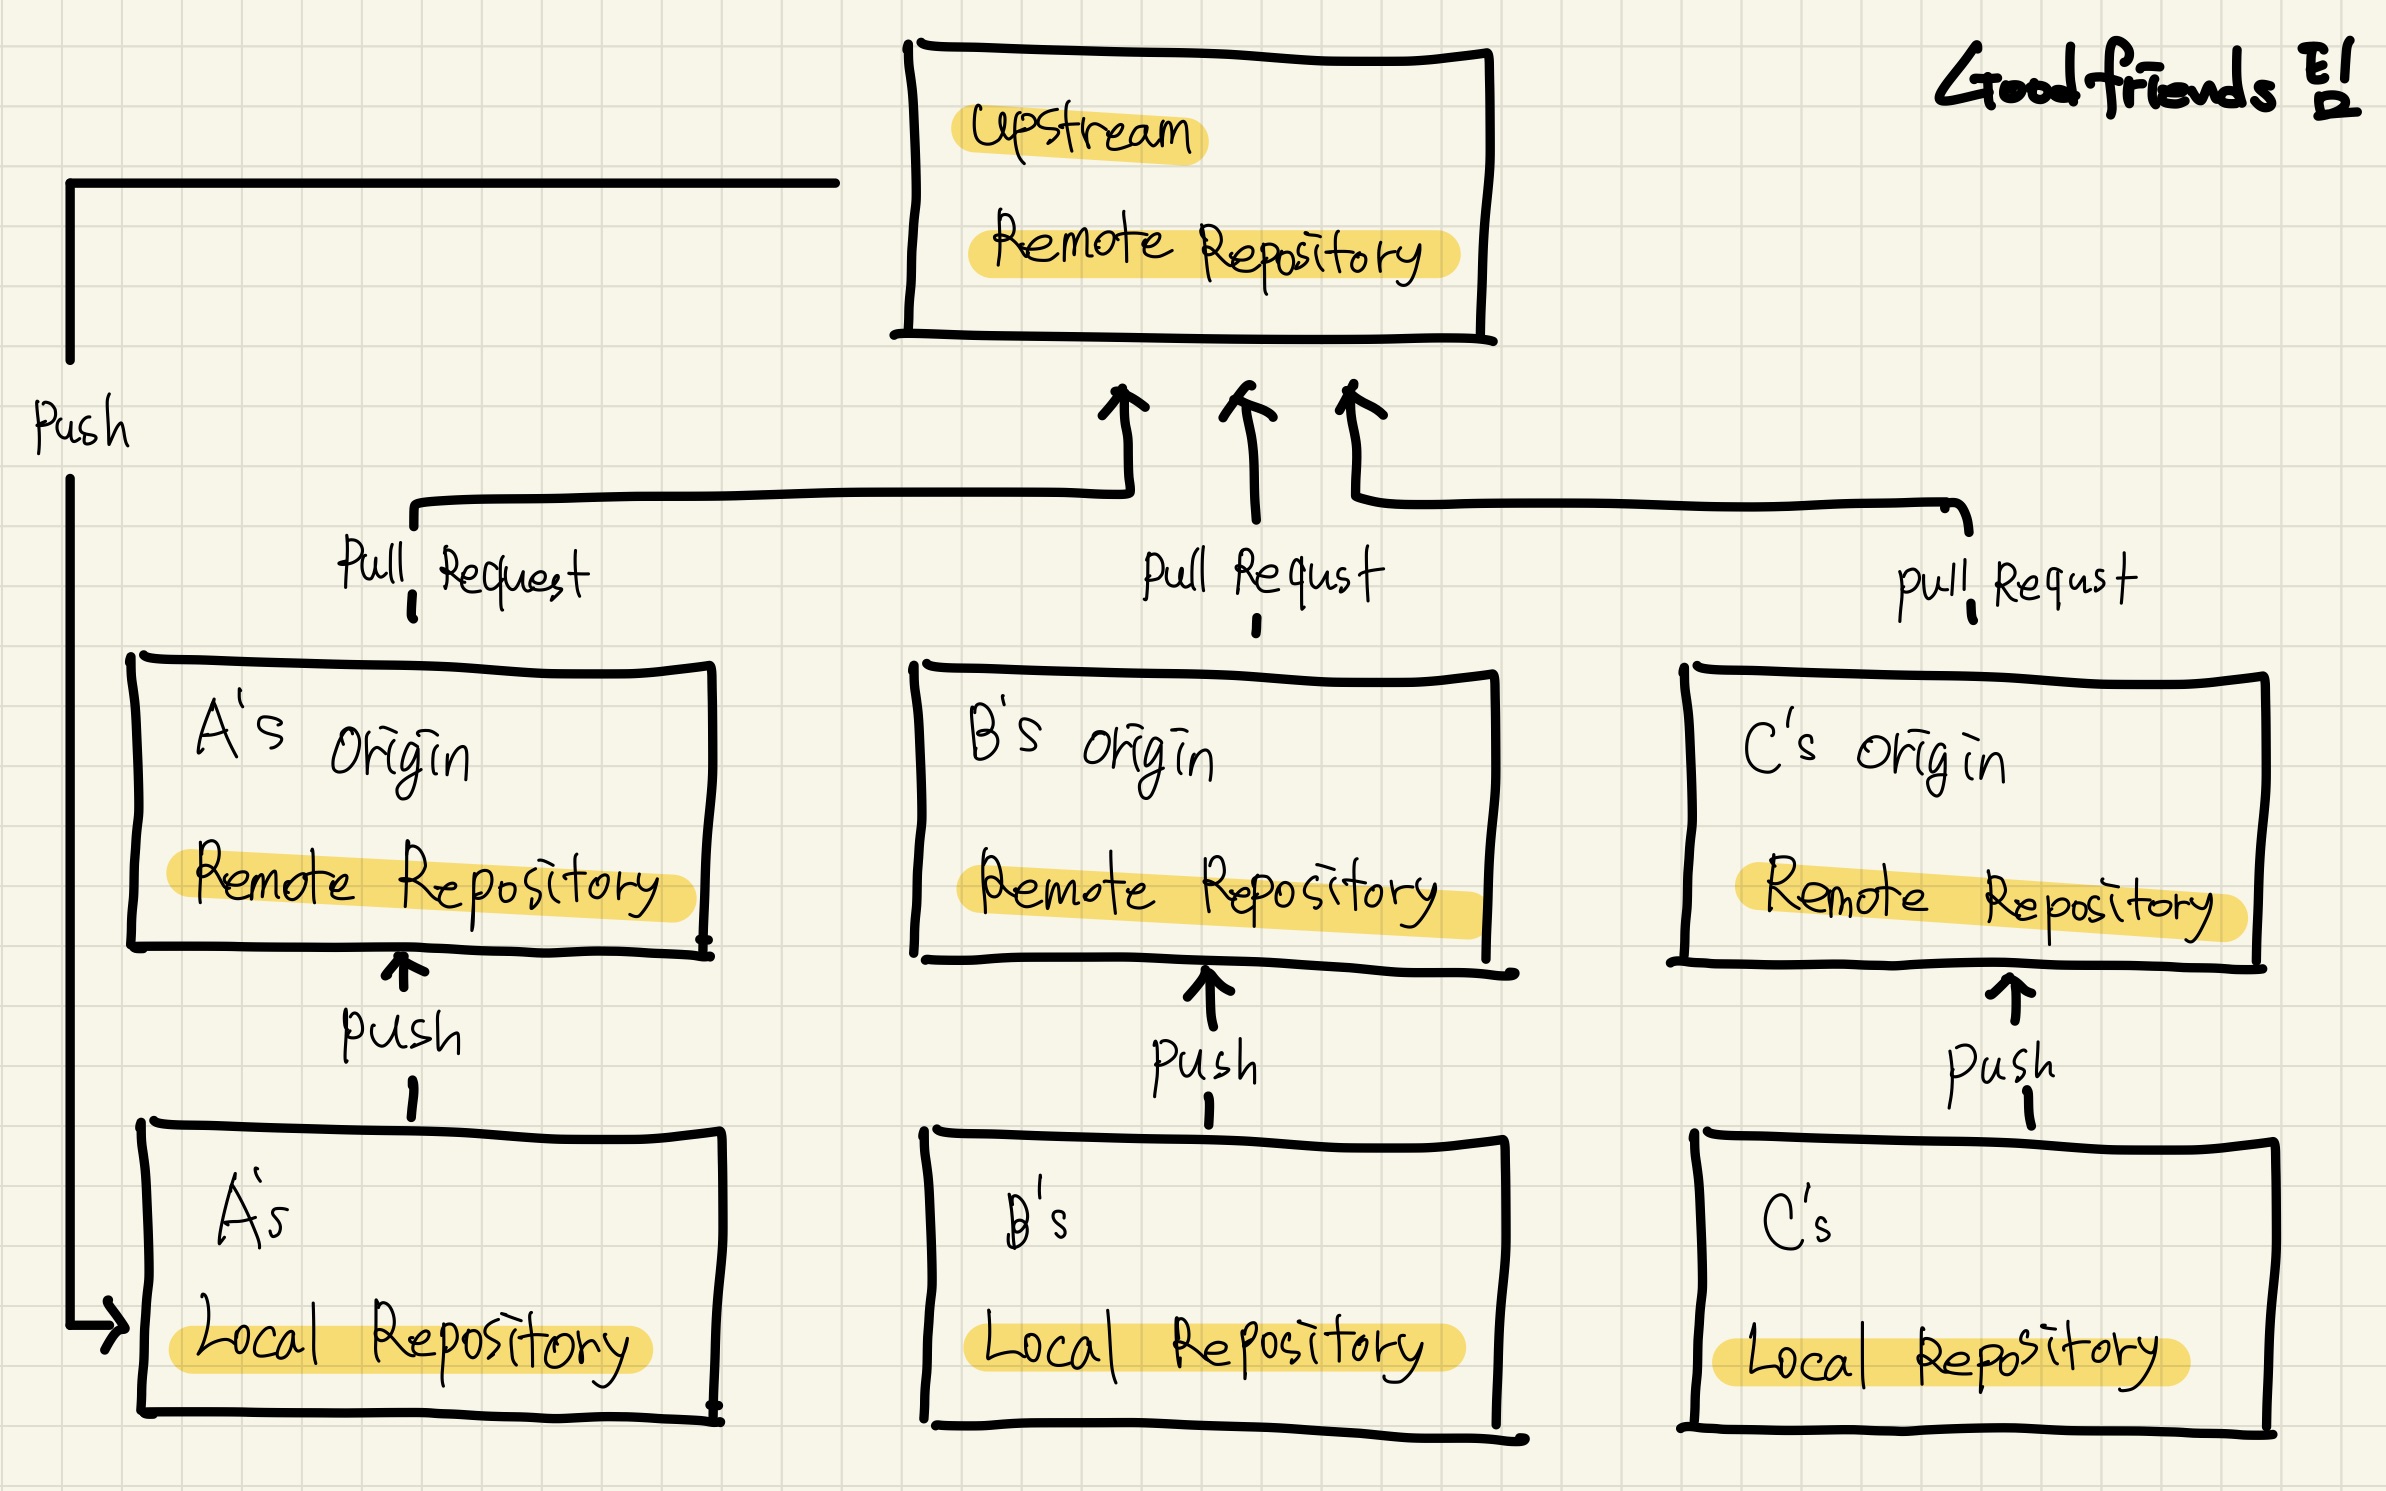 Goodfriends 팀
Upstream
Remote Repository
Push
Pull Request
Pull Requst
Pull Requst
A's Origin
Remote Repository
B's Origin
Remote Repository
C's Origin
Remote Repository
Push
Push
Push
A's
Local Repository
B's
Local Repository
C's
Local Repository